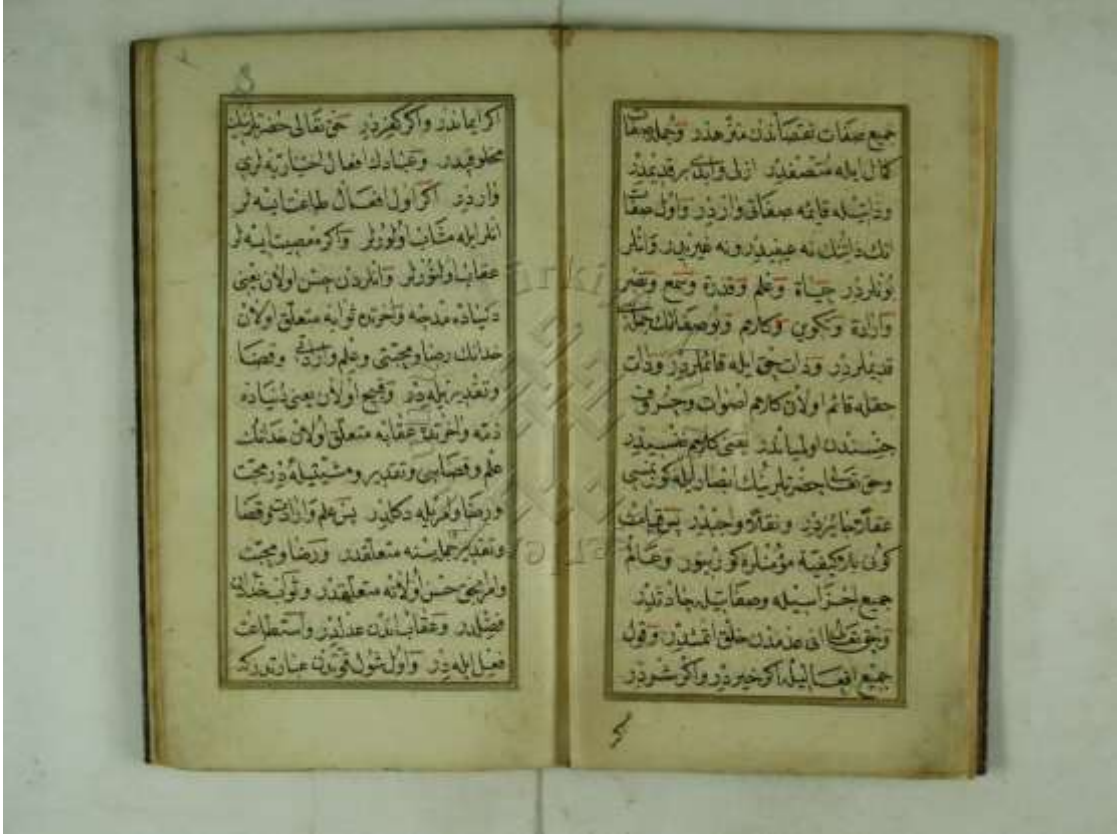 جميع صفات نقصاندن منزهدر وجمله صفات
كمال ايله متصفدر ازلى وابدى بر قديمدر
وذاتيله قائمه صفاتى واردر واول صفات
انك ذاتنك نه عينيدر ونه غيريدر وانلر
بونلردر حياة وعلم وقدرة وسمع وبصر
وارادة وتكوين وكلام وبو صفاتك جمله
قديملردر وذات حق ايله قائملردر وذات
حقله قائم اولان كلام اصوات وحروف
جنسندن اولمياندر يعنى كلام نفسيدر
وحق تعالى حضرتلرينك ابصار ايله كورنمسى
عقلا جائزدر ونقلا واجبدر پس قيامت
كونى بلا كيفيه مؤمنلره كورينور وعالم
جميع اجزاسيله وصفاتيله حادثدر
وحق تعالى انى عدمدن خلق اتمشدر وقول
جميع افعاليله اكر خيردر واكر شردر
اكر ايماندر واكر كفردر حق تعالى حضرتلرينك
مخلوقيدر وعبادك افعال اختياريه لرى
واردر اكر اول افعال طاعت ايسه لر
انلر ايله مثاب اولورلر واكر معصيت ايسه لر
عقاب اولنورلر وانلردن حسن اولان يعنى
دنياده مدحه واخرتده ثوابه متعلق اولان
خدانك رضا ومحبتى وعلم وارادتى وقضا
وتقديريله در وقبيح اولان يعنى دنياده
ذمه واخرتده عقابه متعلق اولان خدانك
علم وقضاسى وتقدير ومشيتيله در محبت
ورضا وامريله دكلدر پس علم وارادت وقضا
وتقدير جمله سنه متعلقدر ورضا ومحبت
وامر حسن اولانه متعلقدر وثواب خدانك
فضلدر وعقاب اندن عدلدر واستطاعت
فعل ايله در واول شول قوتدن عبارتدر كه